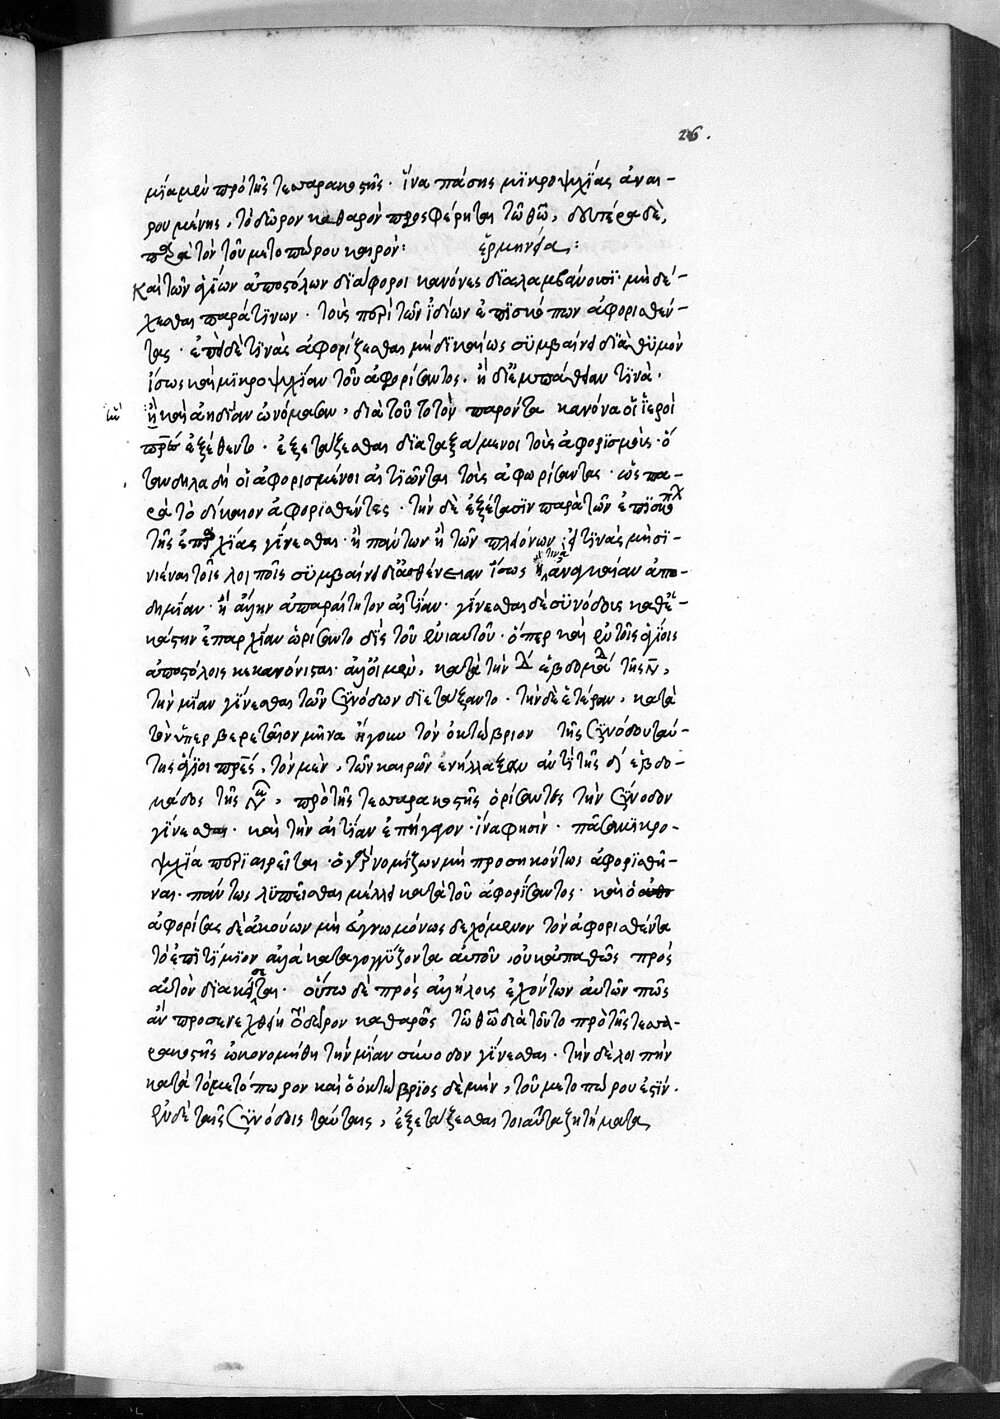 26.
μία μὲν πρὸ τῆς τεσσαρακοστῆς · ἵνα πάσης μϊκροψυχίας ἀναι-
ρουμένης, τὸ δῶρον καθαρὸν προσφέρηται τῶ θῶ, δευτέρα δὲ,
περὶ τὸν τοῦ μετοπώρου καιρόν: ἑρμηνεία:
Καὶ τῶν ἁγίων ἀποστόλων διάφοροι κανόνες διαλαμβάνουσι · μὴ δέ-
χεσθαι παρά τινων · τοὺς περὶ τῶν ἰδίων ἐπισκόπων ἀφορισθέν-
τας · ἐπεὶ δὲ τινὰς ἀφορίζεσθαι μὴ δικαίως συμβαίνει διὰ θυμὸν
ἴσως καὶ μϊκροψυχίαν τοῦ ἀφορίσαντος. ἢ δι' ἐμπάθειαν τινὰ.
ἣν καὶ ἀηδίαν ὠνόμασαν, διὰ τοῦτο τὸν παρόντα κανόνα οἱ ἱεροὶ
πρες ἐξέθεντο · ἐξετάζεσθαι διαταξάμενοι τοὺς ἀφορισμοὺς · ὅ
ταν δηλαδὴ οἱ ἀφορισμένοι αἰτιῶνται τοὺς ἀφωρίσαντας · ὡς πα-
ρὰ τὸ δίκαιον ἀφορισθέντες · τὴν δὲ ἐξέτασιν παρὰ τῶν ἐπισκό
τῆς ἐπαρχίας γίνεσθαι · ἢ πάντων ἢ τῶν πλειόνων εἰ τινὰς μὴ σϋ-
νιέναι τοῖς λοιποῖς συμβαίνει δι' ἀσθένειαν ἴσως ἢ ἀναγκαίαν ἀπο-
δημίαν · ἢ ἄλλην ἀπαραίτητον αἰτίαν · γίνεσθαι δὲ συνόδους καθ' ἑ-
κάστην ἐπαρχίαν ὡρίσαντο δὶς τοῦ ἐνιαυτοῦ · ὅπερ καὶ ἐν τοῖς ἁγίοις
ἀποστόλοις κεκανόνισται · ἀλλ' οἱ μὲν, κατὰ τὴν δ ἑβδομάδα τῆς ν,
τὴν μίαν γίνεσθαι τῶν συνόδων διετάξαντο · τὴν δὲ ἑτέραν, κατὰ
τὸν ὑπερβερεταῖον μῆνα ἤγουν τὸν ὀκτώβριον τῆς συνόδου ταύ-
της ἅγιοι πρες, τὸν μὲν, τῶν καιρῶν ἐνήλλαξαν ἀντὶ τῆς δ ἑβδο-
μάδος τῆς ν, πρὸ τῆς τεσσαρακοστῆς ὁρίσαντες τὴν σύνοδον
γίνεσθαι · καὶ τὴν αἰτίαν ἐπήγαγον · ἵνα φησὶν · πᾶσα μικρο-
ψυχία περιαιρεῖται · ὁ γὰρ νομίζων μὴ προσηκόντως ἀφορισθῆ-
ναι · πάντως λυπεῖσθαι μέλλει κατὰ τοῦ ἀφορίσαντος · καὶ ὁ
ἀφορίσας δὲ ἀκούων μὴ εὐγνωμόνως δεχόμενον τὸν ἀφορισθέντα
τὸ ἐπιτίμιον ἀλλὰ καταγογγύζοντα αὐτοῦ, οὐκ ἀπαθῶς πρὸς
αὐτὸν διακείσεται · οὕτω δὲ πρὸς ἀλλήλους ἐχόντων αὐτῶν πῶς
ἂν προσενεχθείη τὸ δῶρον καθαρῶς τῶ θῶ διὰ τοῦτο πρὸ τῆς τεσσα-
ρακοστῆς ὠκονομήθη τὴν μίαν σύνοδον γίνεσθαι. τὴν δὲ λοιπὴν
κατὰ τὸ μετόπωρον καὶ ὁ ὀκτώβριος δὲ μὴν, τοῦ μετοπώρου ἐστίν.
ἐν δὲ ταῖς συνόδοις ταύταις, ἐξετάζεσθαι τοιαῦτα ζητήματα